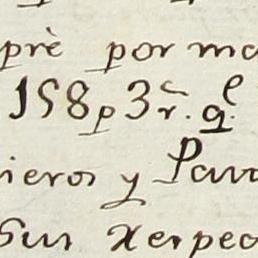 pré por ma
158p 3r. q.e
ieros y Pava
Sus Xerpec